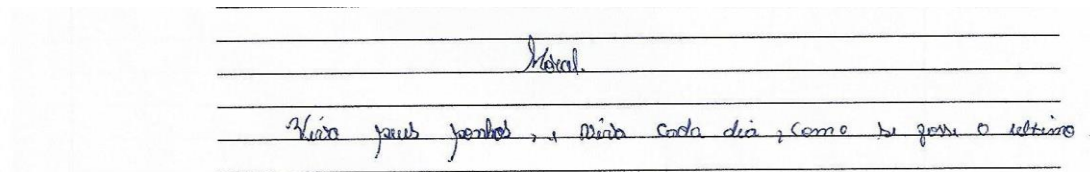 Moral.
Viva seus sonhos, e viva cada dia, como se fosse o ultimo